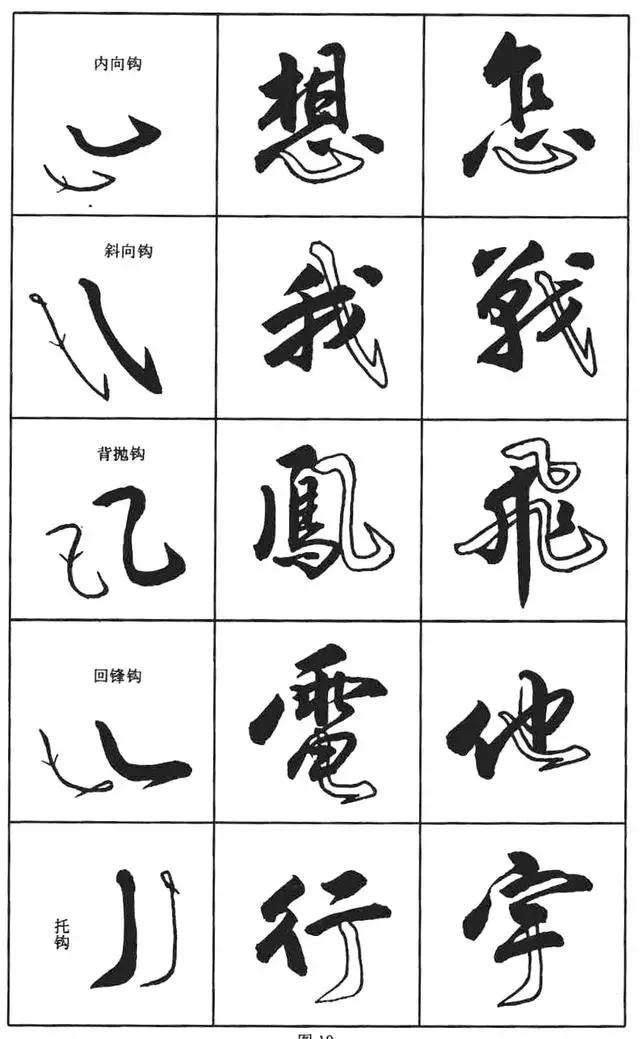 内向钩 想 怎
斜向钩 我 戰
背抛钩 鳳 飛
回锋钩 電 他
托钩 行 宇